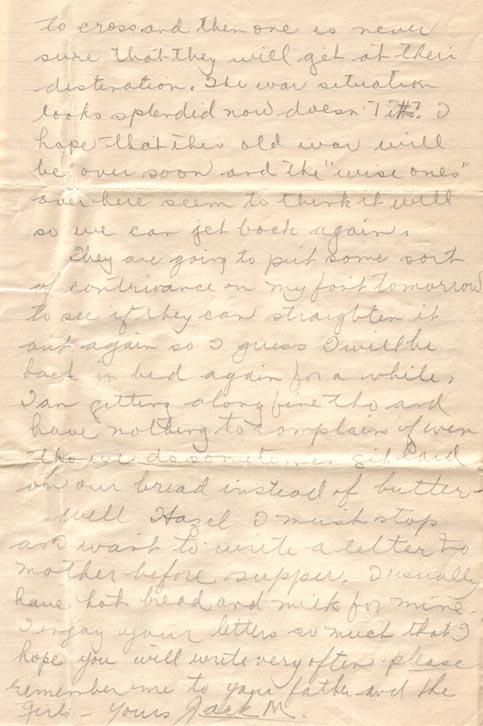 to cross and then one is never
sure that they will get at their
destination. The war situation
looks splendid now doesn't it? I
hope that this old war will
be over soon and the "wise ones"
over here seem to think it will
so we can get back again.
They are going to put some sort
of contrivance on my foot tomorrow
to see if they can straighten it
out again so I guess I will be
back in bed again for a while.
I am gitting along fine tho and
have nothing to complain of even
tho we do sometimes git lard
on our bread instead of butter-
well Hazel I must stop
as I want to write a letter to
mother before supper. I usually
have hot bread and milk for mine.
I enjoy your letters so much that I
hope you will write very often please
remember me to your father and the
girls - yours Jack M.